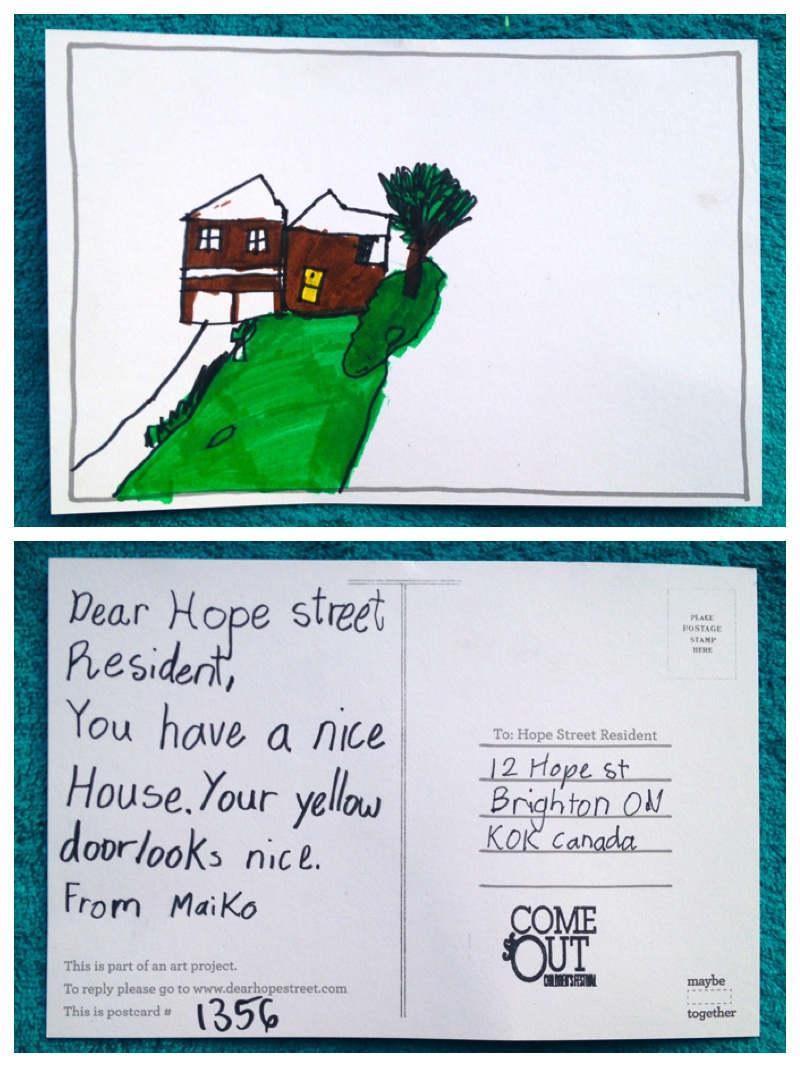 Dear Hope street
Resident,
You have a nice
House. Your yellow
door looks nice.
From Maiko
This is part of an art project.
To reply please go to www.dearhopestreet.com
This is postcard # 1356
PLACE
POSTAGE
STAMP
HERE
To: Hope Street Resident
12 Hope st
Brighton ON
K0K Canada
COME
OUT
CHILDREN'S FESTIVAL
maybe
together